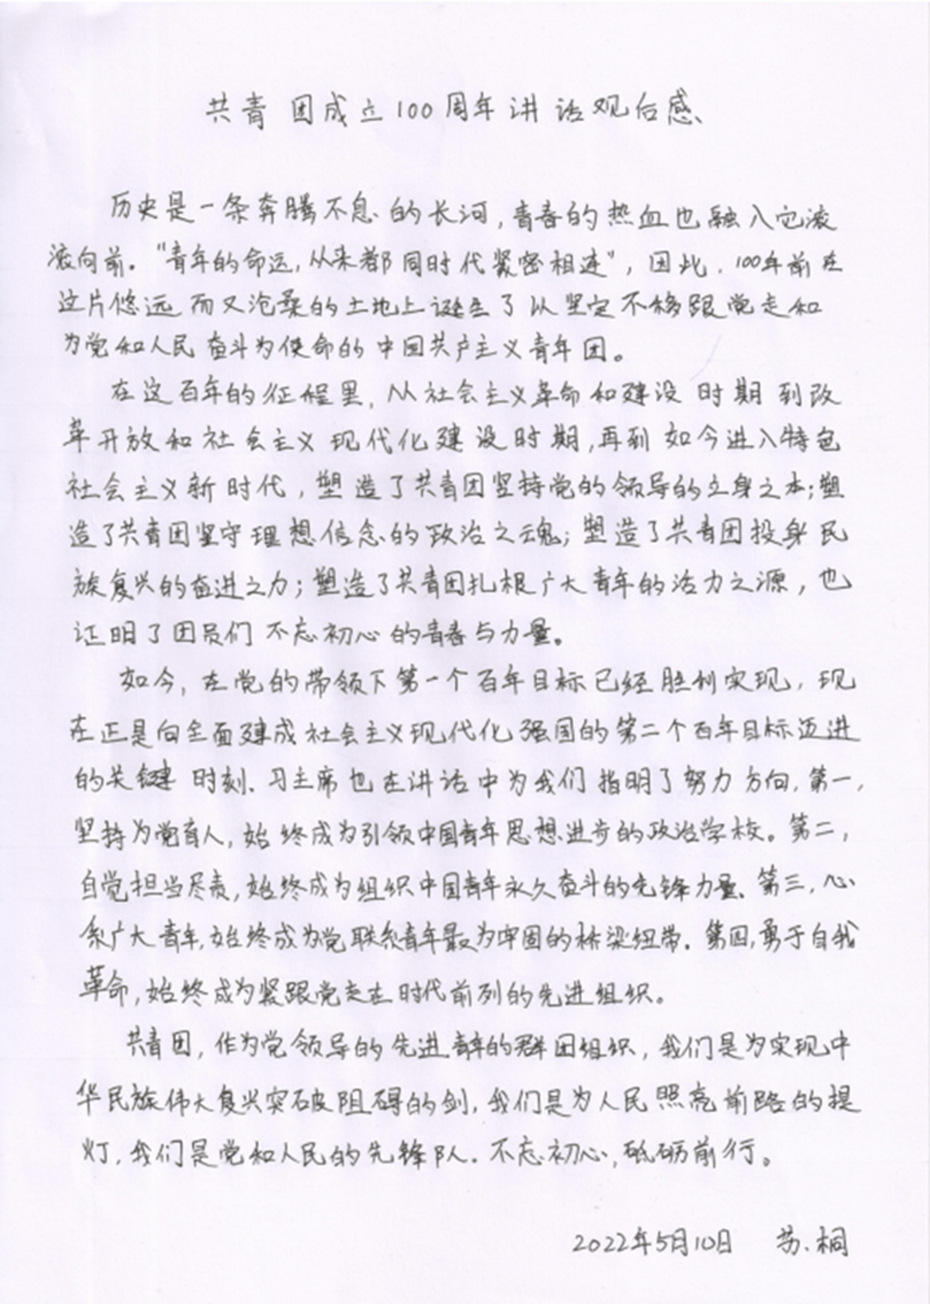 共青团成立100周年讲话观后感
历史是一条奔腾不息的长河,青春的热血也融入它滚
滚向前.“青年的命运,从来都同时代紧密相连”,因此,100年前在
这片悠远而又沧桑的土地上诞生了以坚定不移跟党走和
为党和人民奋斗为使命的中国共产主义青年团。
在这百年的征程里,从社会主义革命和建设时期到改
革开放和社会主义现代化建设时期,再到如今进入特色
社会主义新时代,塑造了共青团坚持党的领导的立身之本;塑
造了共青团坚守理想信念的政治之魂;塑造了共青团投身民
族复兴的奋进之力;塑造了共青团扎根广大青年的活力之源,也
证明了团员们不忘初心的青春与力量。
如今,在党的带领下第一个百年目标已经胜利实现,现
在正是向全面建成社会主义现代化强国的第二个百年目标迈进
的关键时刻.习主席也在讲话中为我们指明了努力方向.第一,
坚持为党育人,始终成为引领中国青年思想进步的政治学校。第二,
自觉担当尽责,始终成为组织中国青年永久奋斗的先锋力量.第三,心
系广大青年,始终成为党联系青年最为牢固的桥梁纽带.第四,勇于自我
革命,始终成为紧跟党走在时代前列的先进组织。
共青团,作为党领导的先进青年的群团组织,我们是为实现中
华民族伟大复兴突破阻碍的剑,我们是为人民照亮前路的提
灯,我们是党和人民的先锋队.不忘初心,砥砺前行。
2022年5月10日 苏桐